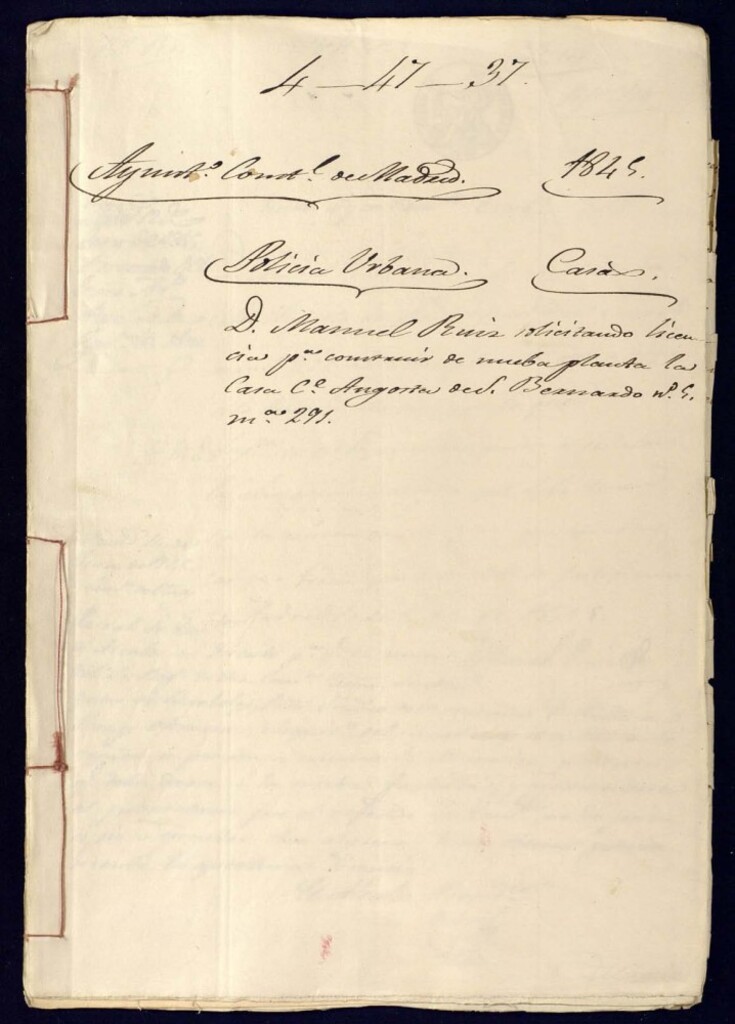 4-47-37.
Ayuntº. Constl. de Madrid. 1845.
Policia Urbana. Casas.
D. Manuel Ruiz solicitando licen-
cia pª construir de nueba planta la
Casa Cº Angosta de S. Bernardo nº. 5.
mª 291.